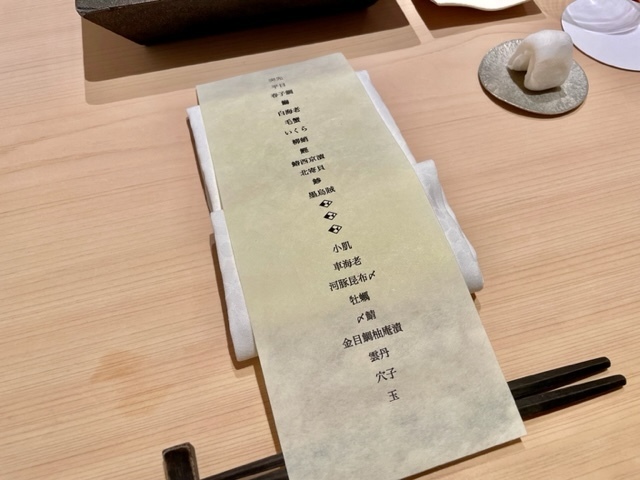 平目
春子鯛
白海老
毛蟹
いくら
鰆西京漬
北寄貝
鯵
墨烏賊
小肌
車海老
河豚昆布〆
牡蠣
〆鯖
金目鯛柚庵漬
雲丹
穴子
玉